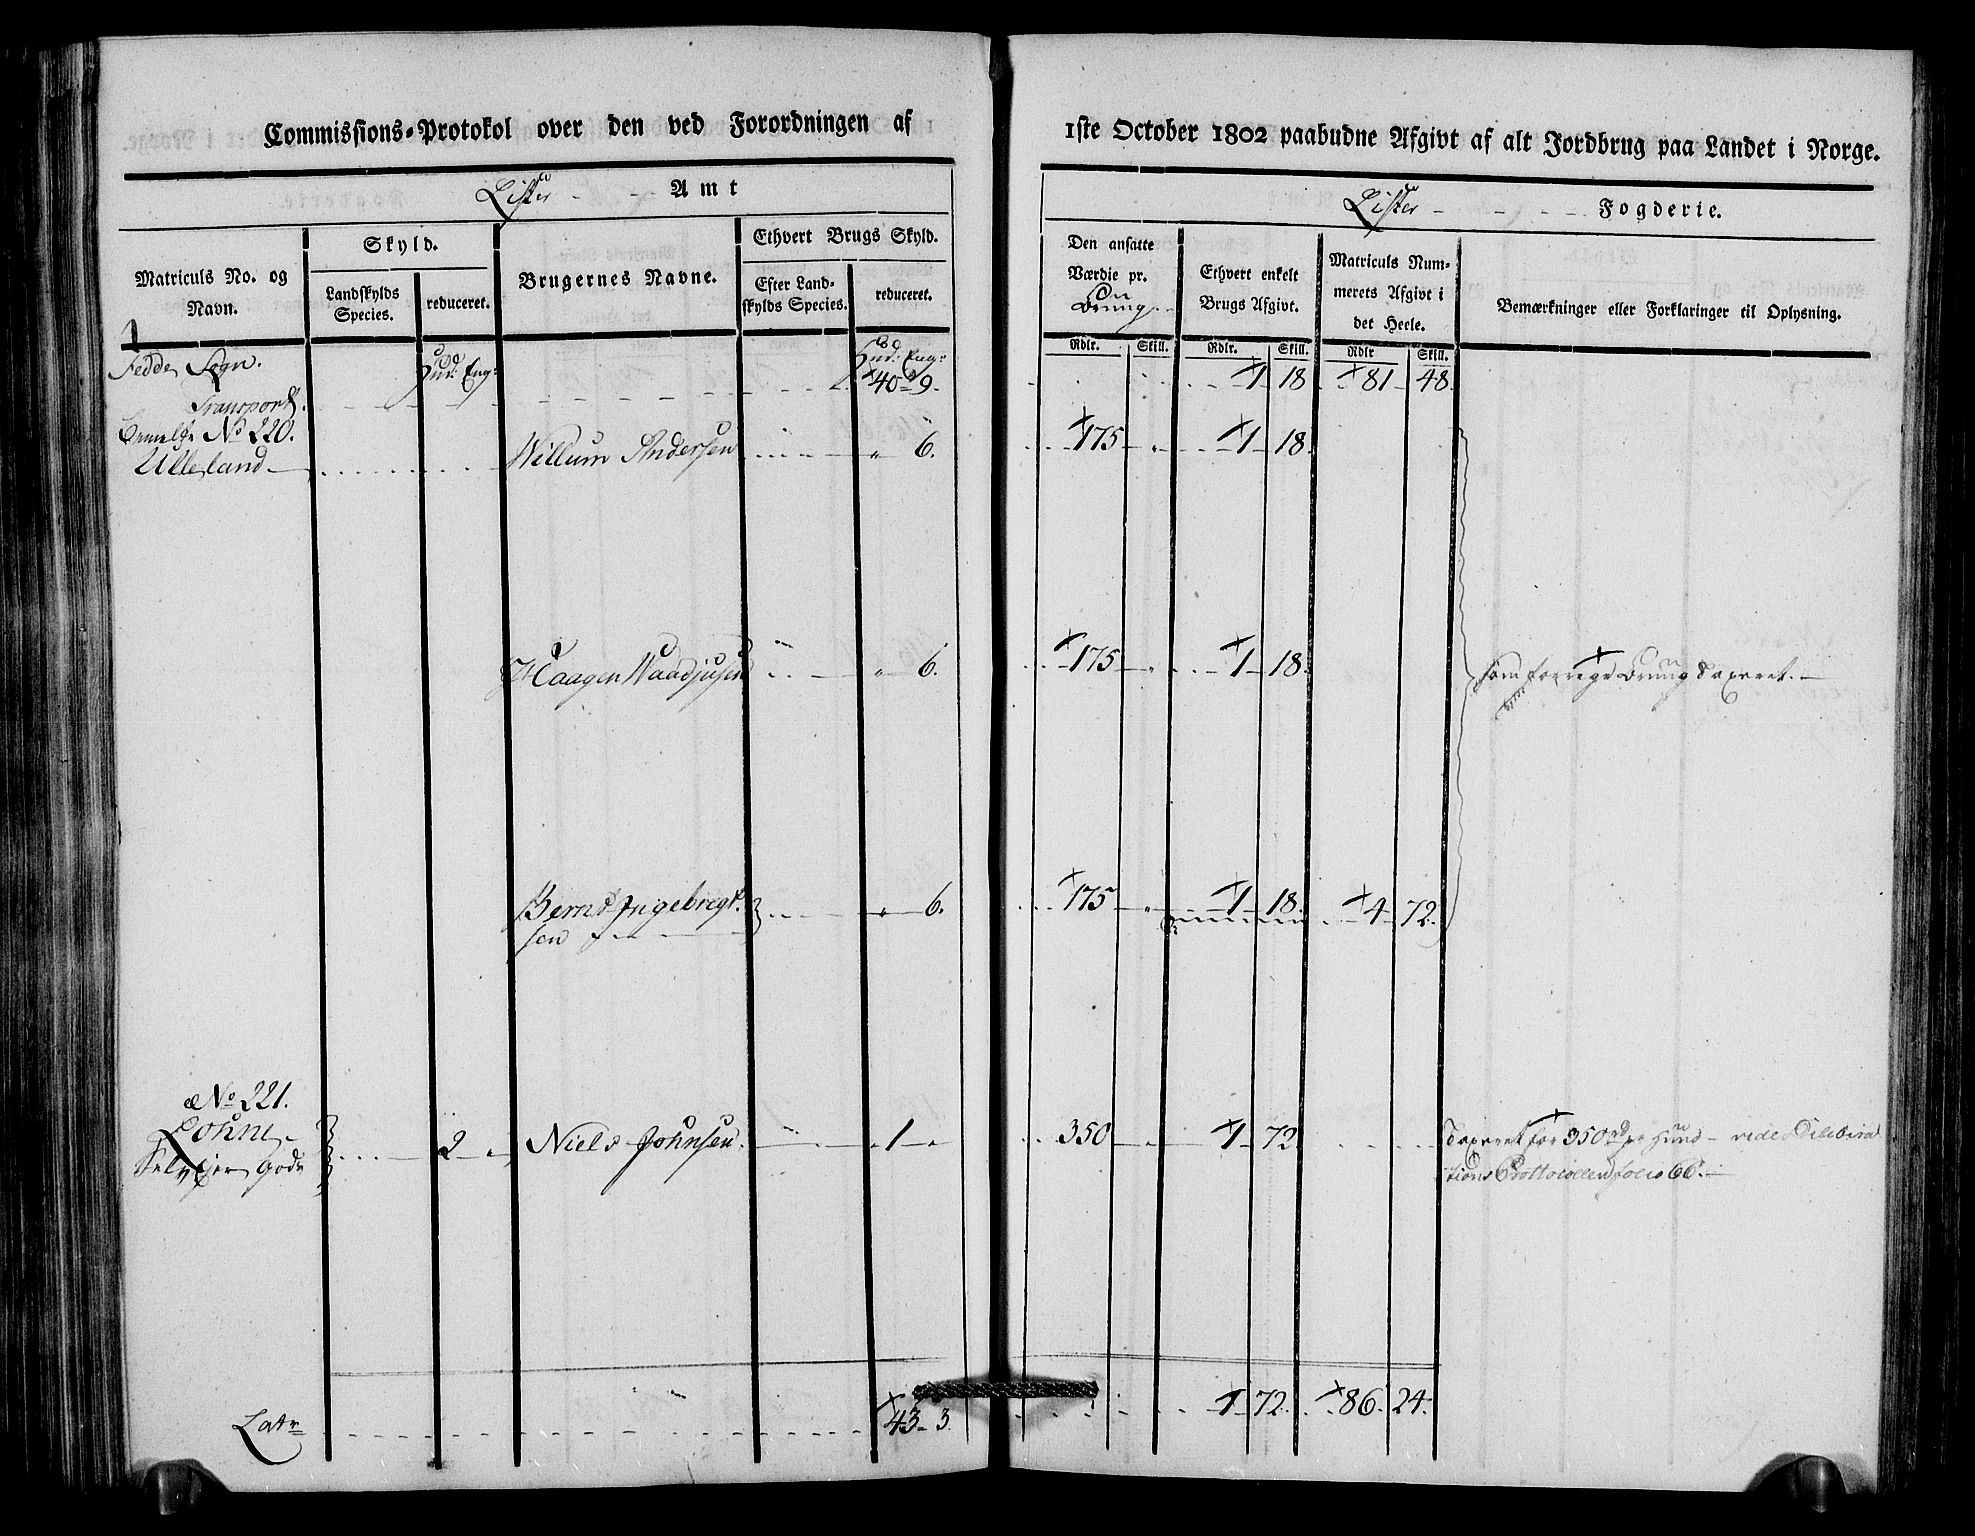 Commissions-Protokol over den ved Forordningen af 1ste October 1802 paabudne Afgivt af alt Jordbrug paa Landet i Norge.
Lister Amt
Lister Fogderie.
Matriculs No. og Navn.
Skyld.
Landskylds Species.
reduceret.
Brugernes Navne.
Ethvert Brugs Skyld.
Efter Landskylds Species.
reduceret.
Den ansatte Værdie pr.
Ethvert enkelt Brugs Afgivt.
Matriculs Nummerets Afgivt i det Heele.
Bemærkninger eller Forklaringer til Oplysning.
Rdlr. Skill. Rdlr. Skill. Rdlr Skill.
Fedde Sogn. Hud: Eng: Hud: Eng:
Transport 40 9. 1 18 81 48.
No 220.
Ulleland Willum Andersen " 6. 175 " 1 18.
Haagen Waadjusen " 6. 175 " 1 18. som forrige taxeret.
Bernt Ingebregt- " 6. 175 " 1 18. 4 72.
sen
No 221.
Lohne 2 " Niels Johnsen. 1 " 350 1 72 Taxeret for 350 rd pr Hud vide Delibera
Selvejer Gods tions Prottocollen folio 66.
Latr 43 3. 1 72. 86. 24.